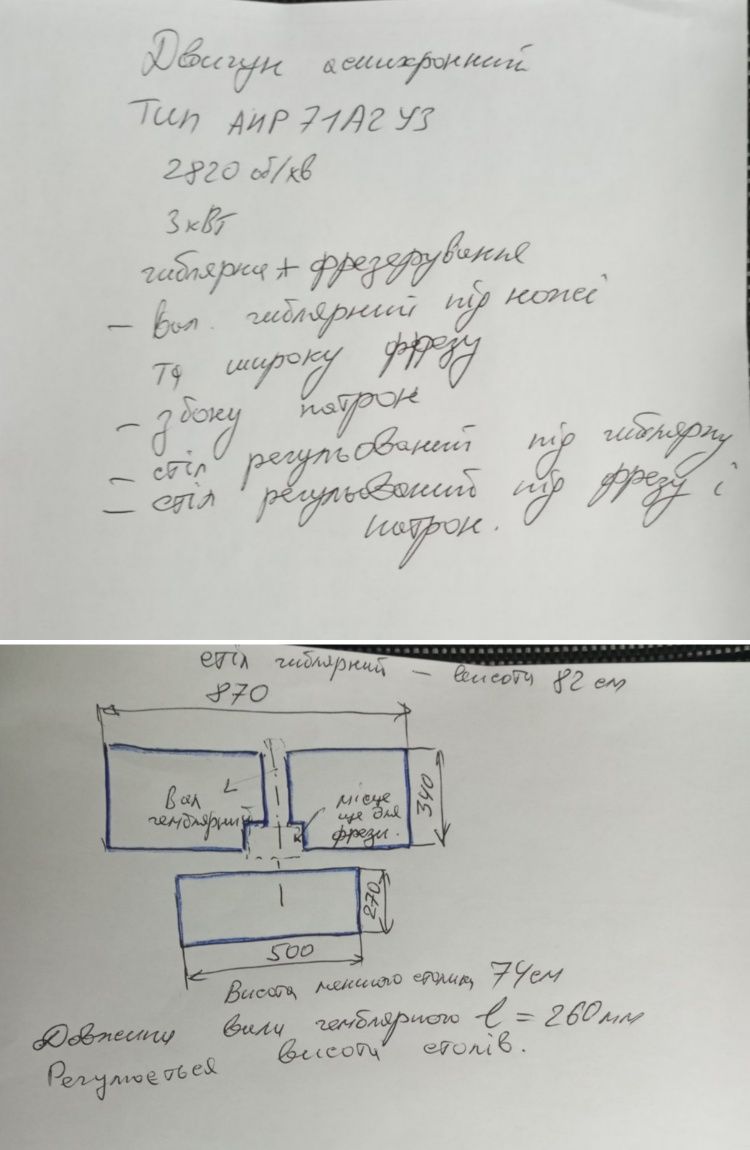 Двигун асинхронний
Тип АИР 71А2 У3
2820 об/хв
3 кВт
гиблярка + фрезерування
- вал. гиблярний під ножі
та широку фрезу
- збоку патрон
- стіл регульований під гиблярку
- стіл регульований під фрезу і
патрон.
стіл гиблярний - висота 82 см
870
Вал
гемблярний
місце
ще для
фрези.
340
270
500
Висота меншого столика 74 см
Довжина вали гемблярного l = 260 мм
Регулюється висота столів.